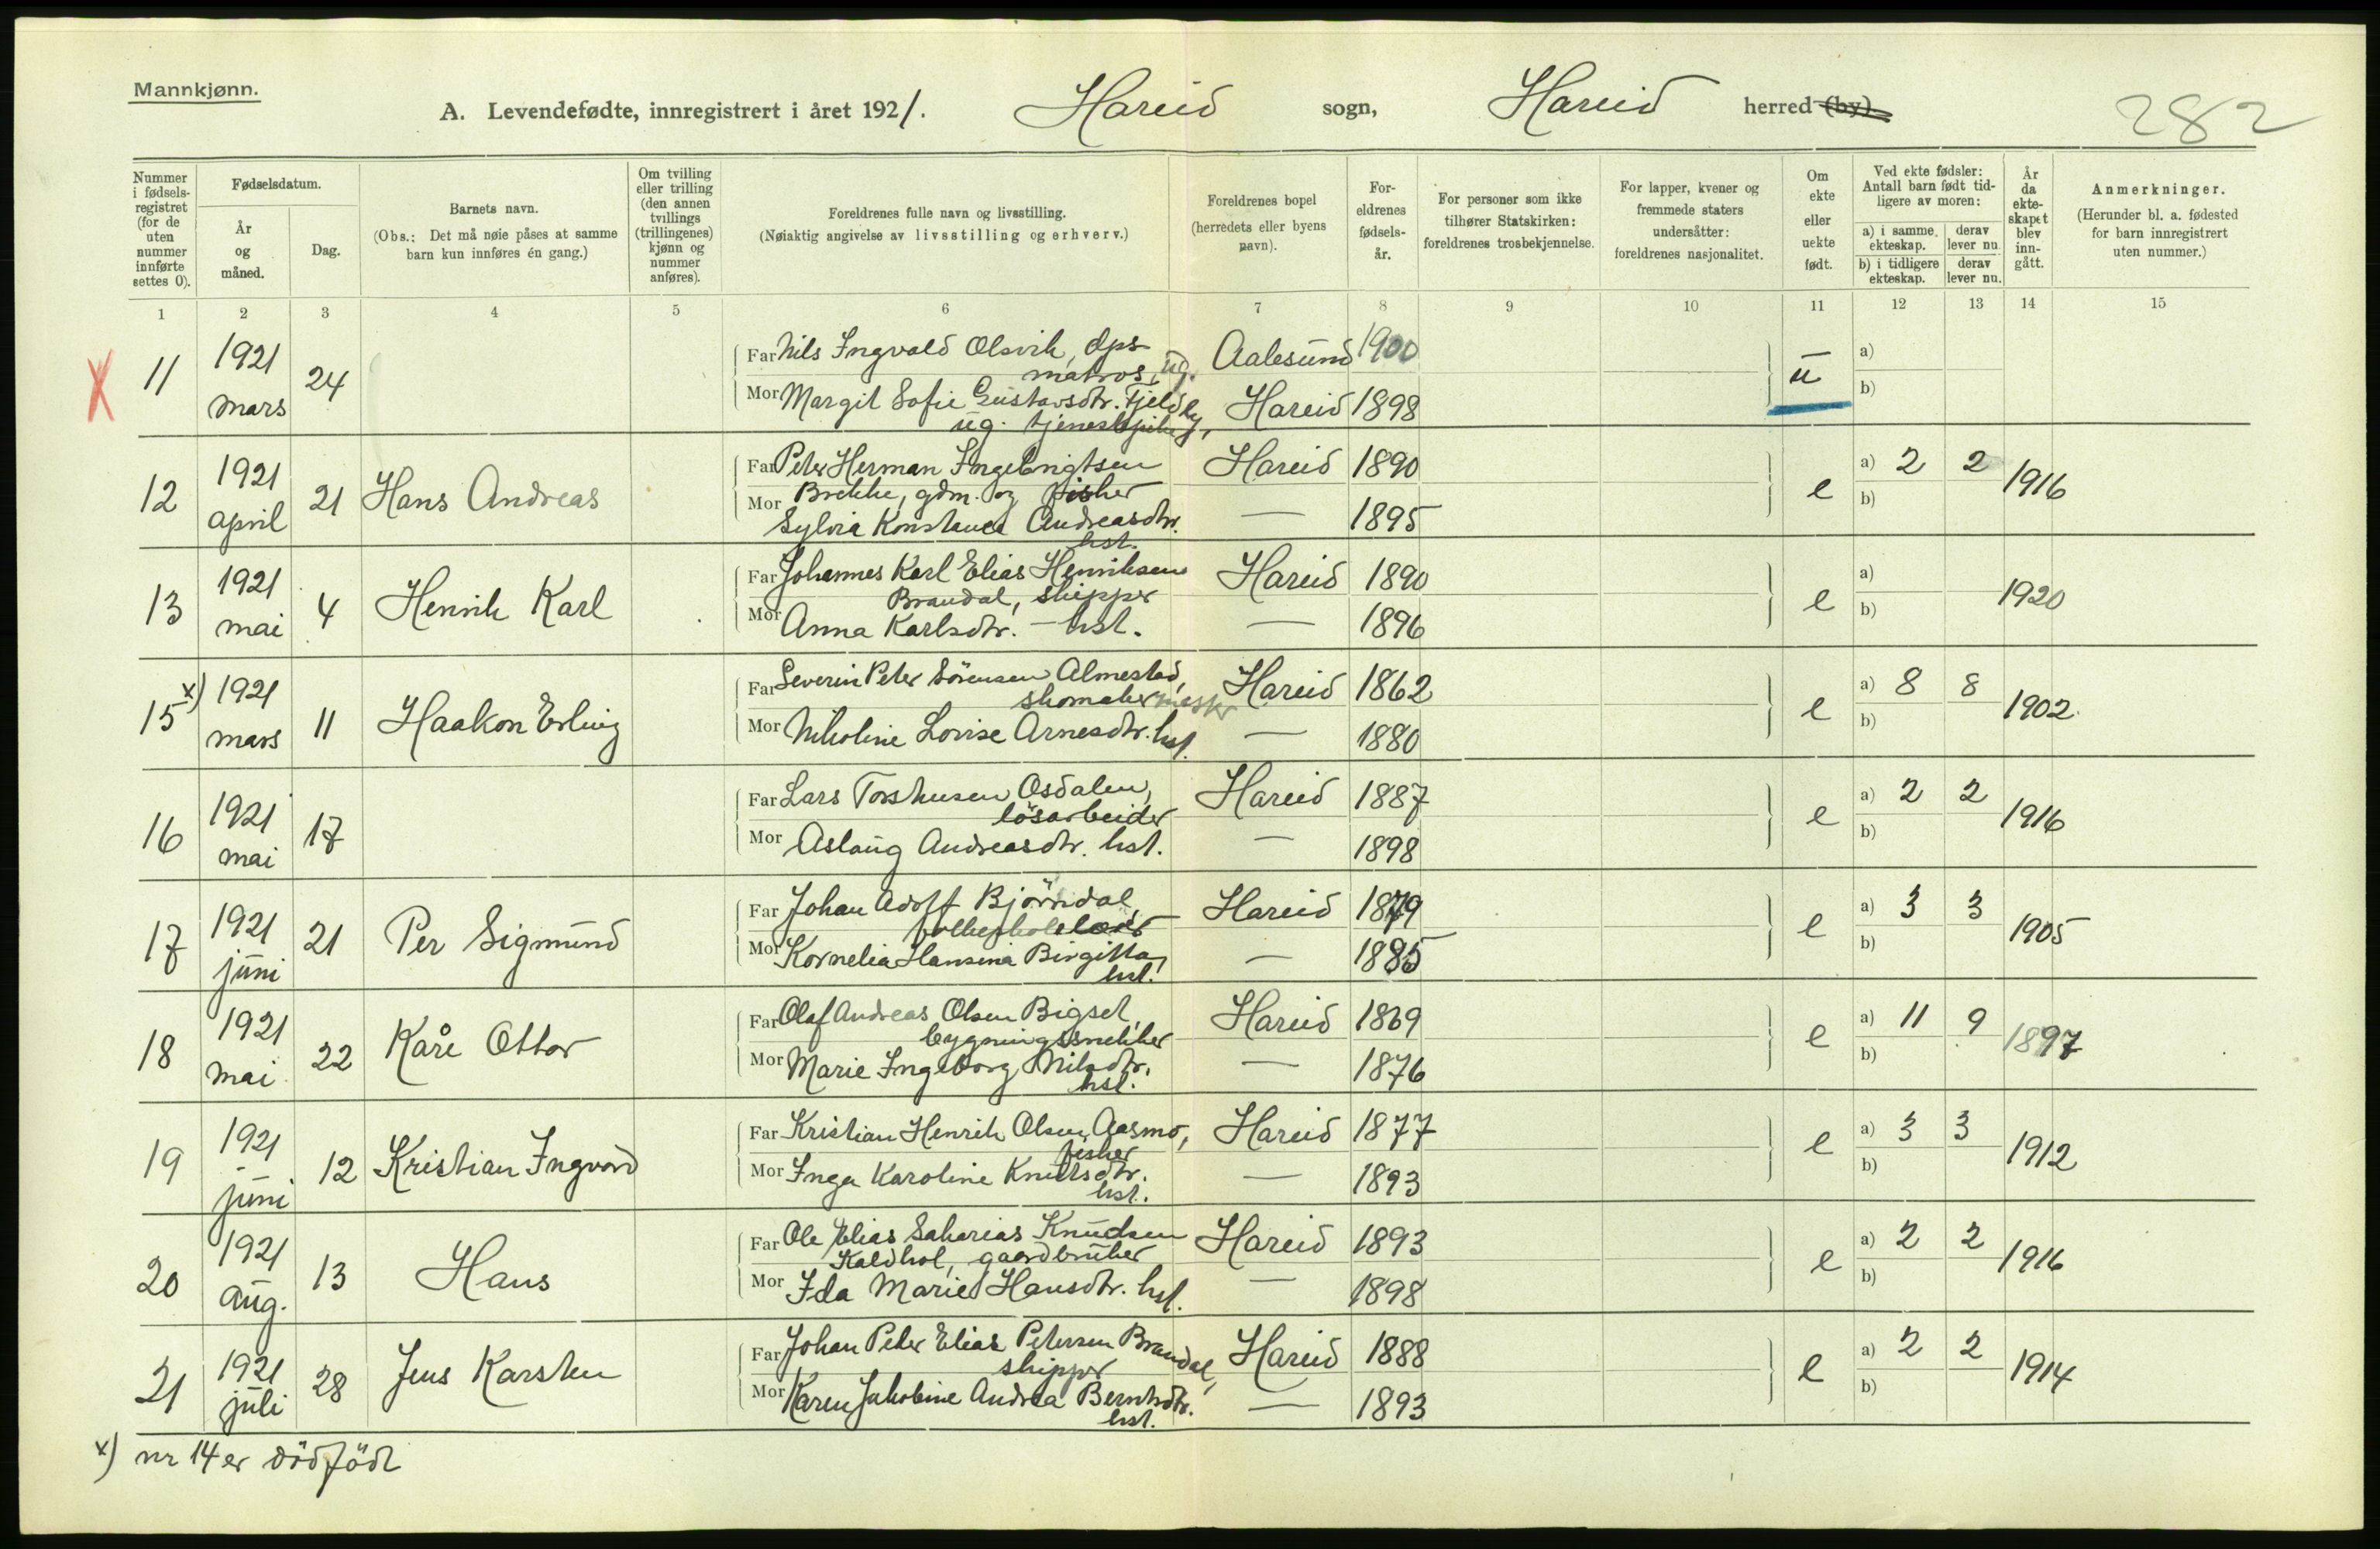 Mannkjønn.
A. Levendefødte, innregistrert i året 1921. Hareid sogn, Hareid herred (by).
282
Nummer i fødsels-registret (for de uten nummer innførte settes 0).
Fødselsdatum.
År og måned.
Dag.
Barnets navn.
(Obs.: Det må nøie påses at samme barn kun innføres én gang.)
Om tvilling eller trilling (den annen tvillings (trillingenes) kjønn og nummer anføres).
Foreldrenes fulle navn og livsstilling.
(Nøiaktig angivelse av livsstilling og erhverv.)
Foreldrenes bopel
(herredets eller byens navn).
For-eldrenes fødsels-år.
For personer som ikke tilhører Statskirken: foreldrenes trosbekjennelse.
For lapper, kvener og fremmede staters undersåtter: foreldrenes nasjonalitet.
Om ekte eller uekte født.
Ved ekte fødsler: Antall barn født tid-ligere av moren:
a) i samme ekteskap.
derav lever nu.
b) i tidligere ekteskap.
derav lever nu.
År da ekte-skapet blev inn-gått.
Anmerkninger.
(Herunder bl. a. fødested for barn innregistrert uten nummer.)
1 2 3 4 5 6 7 8 9 10 11 12 13 14 15
X 11 1921 mars 24
Far Nils Ingvald Olsvik, dps- matros, ug. Aalesund 1900
Mor Margit Sofie Gustavsdtr. Fjeldby, ug. Hareid 1898
u a) b)
12 1921 april 21 Hans Andreas
Far Peter Herman Ingebrigtsen Brekke, gdm. og fisker Hareid 1890
Mor Sylvia Konstanca Andreasdtr. hst. — 1895
e a) 2 2 b) 1916
13 1921 mai 4 Henrik Karl
Far Johannes Karl Elias Henriksen Brandal, skipper Hareid 1890
Mor Anna Karlsdtr. – hst. — 1896
e a) b) 1920
15 x) 1921 mars 11 Haakon Erling
Far Severin Peter Sörensen Almestad, skomakermester Hareid 1862
Mor Nikoline Lovise Arnesdtr. hst. — 1880
e a) 8 8 b) 1902
16 1921 mai 17
Far Lars Osdalen, lösarbeider Hareid 1887
Mor Aslaug Andreasdtr. hst. — 1898
e a) 2 2 b) 1916
17 1921 juni 21 Per Sigmund
Far Johan Adolf Björndal, Hareid 1879
Mor Kornelia Hansina Birgitta, hst. — 1885
e a) 3 3 b) 1905
18 1921 mai 22 Kåre Ottar
Far Olaf Andreas Olsen Bigset, bygningssnekker Hareid 1869
Mor Marie Ingeborg Nilsdtr. hst. — 1876
e a) 11 9 b) 1897
19 1921 juni 12 Kristian Ingvard
Far Kristian Henrik Olsen Aasmo, fisker Hareid 1877
Mor Inga Karoline Knutsdtr. hst. — 1893
e a) 3 3 b) 1912
20 1921 aug. 13 Hans
Far Ole Elias Sakarias Knudsen Kaldhol, gaardbruker Hareid 1893
Mor Ida Marie Hansdtr. hst. — 1898
e a) 2 2 b) 1916
21 1921 juli 28 Jens Karsten
Far Johan Peter Elias Petersen Brandal, skipper Hareid 1888
Mor Karen Jakobine Andrea Berntsdtr. hst. — 1893
e a) 2 2 b) 1914
x) nr 14 er dödfödt